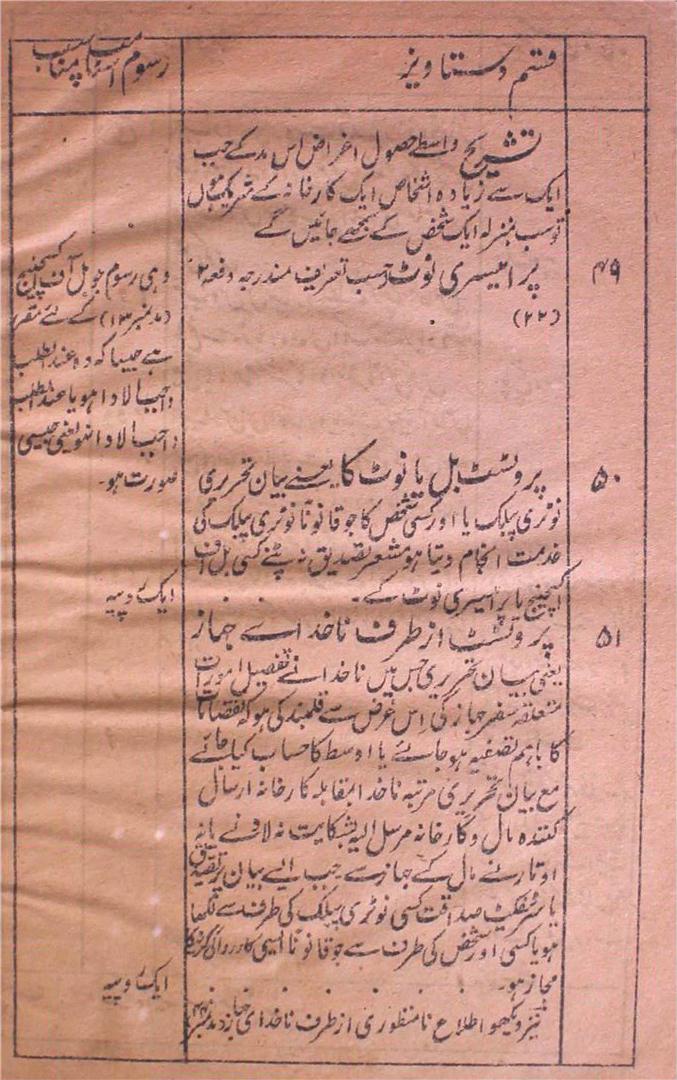 قسم دستاویز
رسوم اسٹامپ مناسب
تشریح واسطے حصول اغراض اس مد کے جب
ایک سے زیادہ اشخاص ایک کارخانہ کے شریک ہوں
تو سب بمنزلہ ایک شخص کے سمجھے جائیں گے
۴۹
پرامیسری نوٹ حسب تعریف مندرجہ دفعہ ۲
(۲۲)
وہی رسوم جو بل آف ایکسچینج
(مد نمبر ۱۳) کے لئے مقرر
ہے جیسا کہ وہ عندالطلب
واجب الادا ہو یا عندالطلب
واجب الادا نہو یعنی جیسی
صورت ہو۔
۵۰
پروٹسٹ بل یا نوٹ کا یعنے بیان تحریری
نوٹری پبلک یا اور کسی شخص کا جو قانوناً نوٹری پبلک کی
خدمت انجام دیتا ہو مشعر تصدیق نہ پٹنے کسی بل آف
ایکسچینج یا پرامیسری نوٹ کے۔
ایک روپیہ
۵۱
پروٹسٹ از طرف ناخداے جہاز
یعنی بیان تحریری جس میں ناخدا نے تفصیل امورات
متعلقہ سفر جہاز کی اس غرض سے قلمبند کی ہو کہ نقصانات
کا باہم تصفیہ ہو جائے یا اوسط کا حساب کیا جائے
مع بیان تحریری مرتبہ ناخدا بمقابلہ کارخانہ ارسال
کنندہ مال و کارخانہ مرسل الیہ بشکایت نہ لادنے یا نہ
اوتارنے مال کے جہاز سے جب ایسے بیان پر تصدیق
یا سرٹفکٹ صداقت کسی نوٹری پبلک کی طرف سے لکھا
ہو یا کسی اور شخص کی طرف سے جو قانوناً ایسی کارروائی کرنیکا
مجاز ہو۔
ایک روپیہ
نیز دیکھو اطلاع نامنظوری از طرف ناخدای جہاز مد نمبر ۴۴